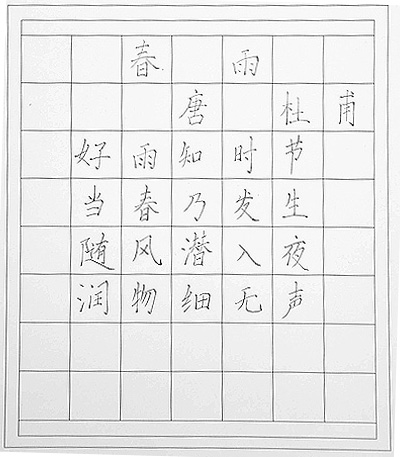 春 雨
唐 杜甫
好雨知时节
当春乃发生
随风潜入夜
润物细无声